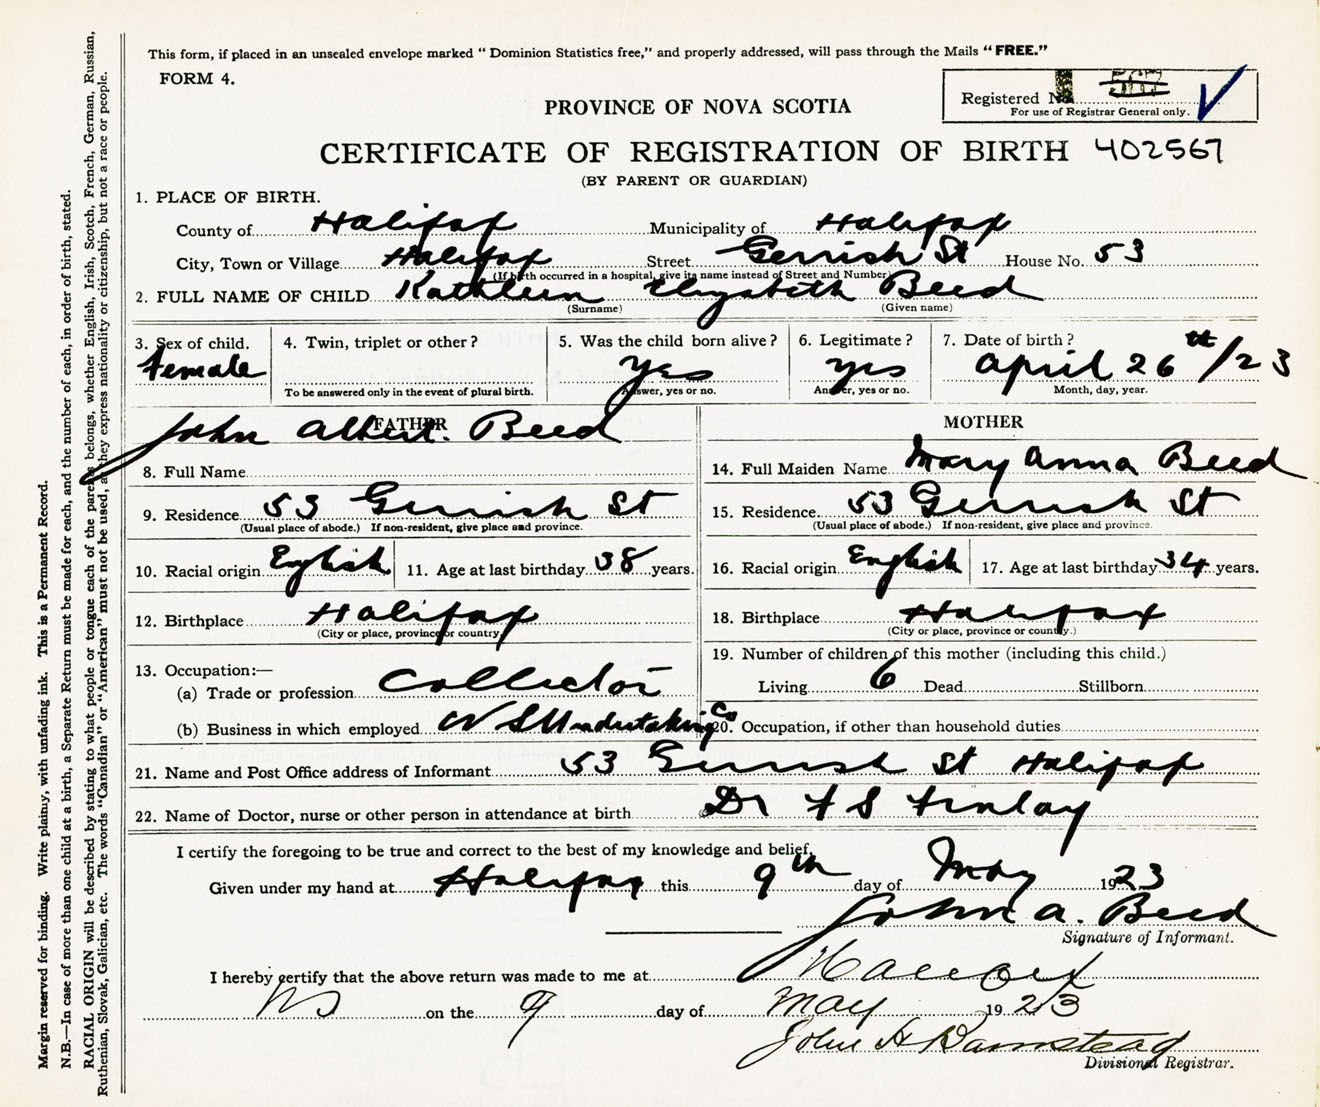 This form, if placed in an unsealed envelope marked “ Dominion Statistics free,” and properly addressed, will pass through the Mails “ FREE.”
FORM 4.
Registered No.
For use of Registrar General only.
PROVINCE OF NOVA SCOTIA
CERTIFICATE OF REGISTRATION OF BIRTH 402567
(BY PARENT OR GUARDIAN)
1. PLACE OF BIRTH.
County of Halifax Municipality of Halifax
City, Town or Village Halifax Street Gerrish St House No. 53
(If birth occurred in a hospital, give its name instead of Street and Number)
2. FULL NAME OF CHILD Kathleen Elizabeth Beed
(Surname) (Given name)
3. Sex of child. 4. Twin, triplet or other ? 5. Was the child born alive ? 6. Legitimate ? 7. Date of birth ?
Female yes yes April 26th/23
To be answered only in the event of plural birth. Answer, yes or no. Answer, yes or no. Month, day, year.
FATHER MOTHER
John Albert. Beed
8. Full Name 14. Full Maiden Name Mary Anna Beed
9. Residence 53 Gerrish St 15. Residence 53 Gerrish St
(Usual place of abode.) If non-resident, give place and province. (Usual place of abode.) If non-resident, give place and province.
10. Racial origin English 11. Age at last birthday 38 years. 16. Racial origin English 17. Age at last birthday 34 years.
12. Birthplace Halifax 18. Birthplace Halifax
(City or place, province or country) (City or place, province or country.)
13. Occupation:— 19. Number of children of this mother (including this child.)
(a) Trade or profession Collector Living 6 Dead Stillborn
(b) Business in which employed N S Undertaking Co 20. Occupation, if other than household duties
21. Name and Post Office address of Informant 53 Gerrish St Halifax
22. Name of Doctor, nurse or other person in attendance at birth Dr F S Finlay
I certify the foregoing to be true and correct to the best of my knowledge and belief,
Given under my hand at Halifax this 9th day of May 1923
John A. Beed
Signature of Informant.
I hereby certify that the above return was made to me at Halifax
NS on the 9 day of May 1923
John H Barnstead
Divisional Registrar.
Margin reserved for binding. Write plainly, with unfading ink. This is a Permanent Record.
N.B.—In case of more than one child at a birth, a Separate Return must be made for each, and the number of each, in order of birth, stated.
RACIAL ORIGIN will be described by stating to what people or tongue each of the parents belongs, whether English, Irish, Scotch, French, German, Russian,
Ruthenian, Slovak, Galician, etc. The words “Canadian” or “American” must not be used, as they express nationality or citizenship, but not a race or people.